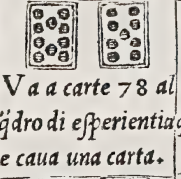 V a a carte 78 al
q̃dro di eſperientia
e caua una carta.